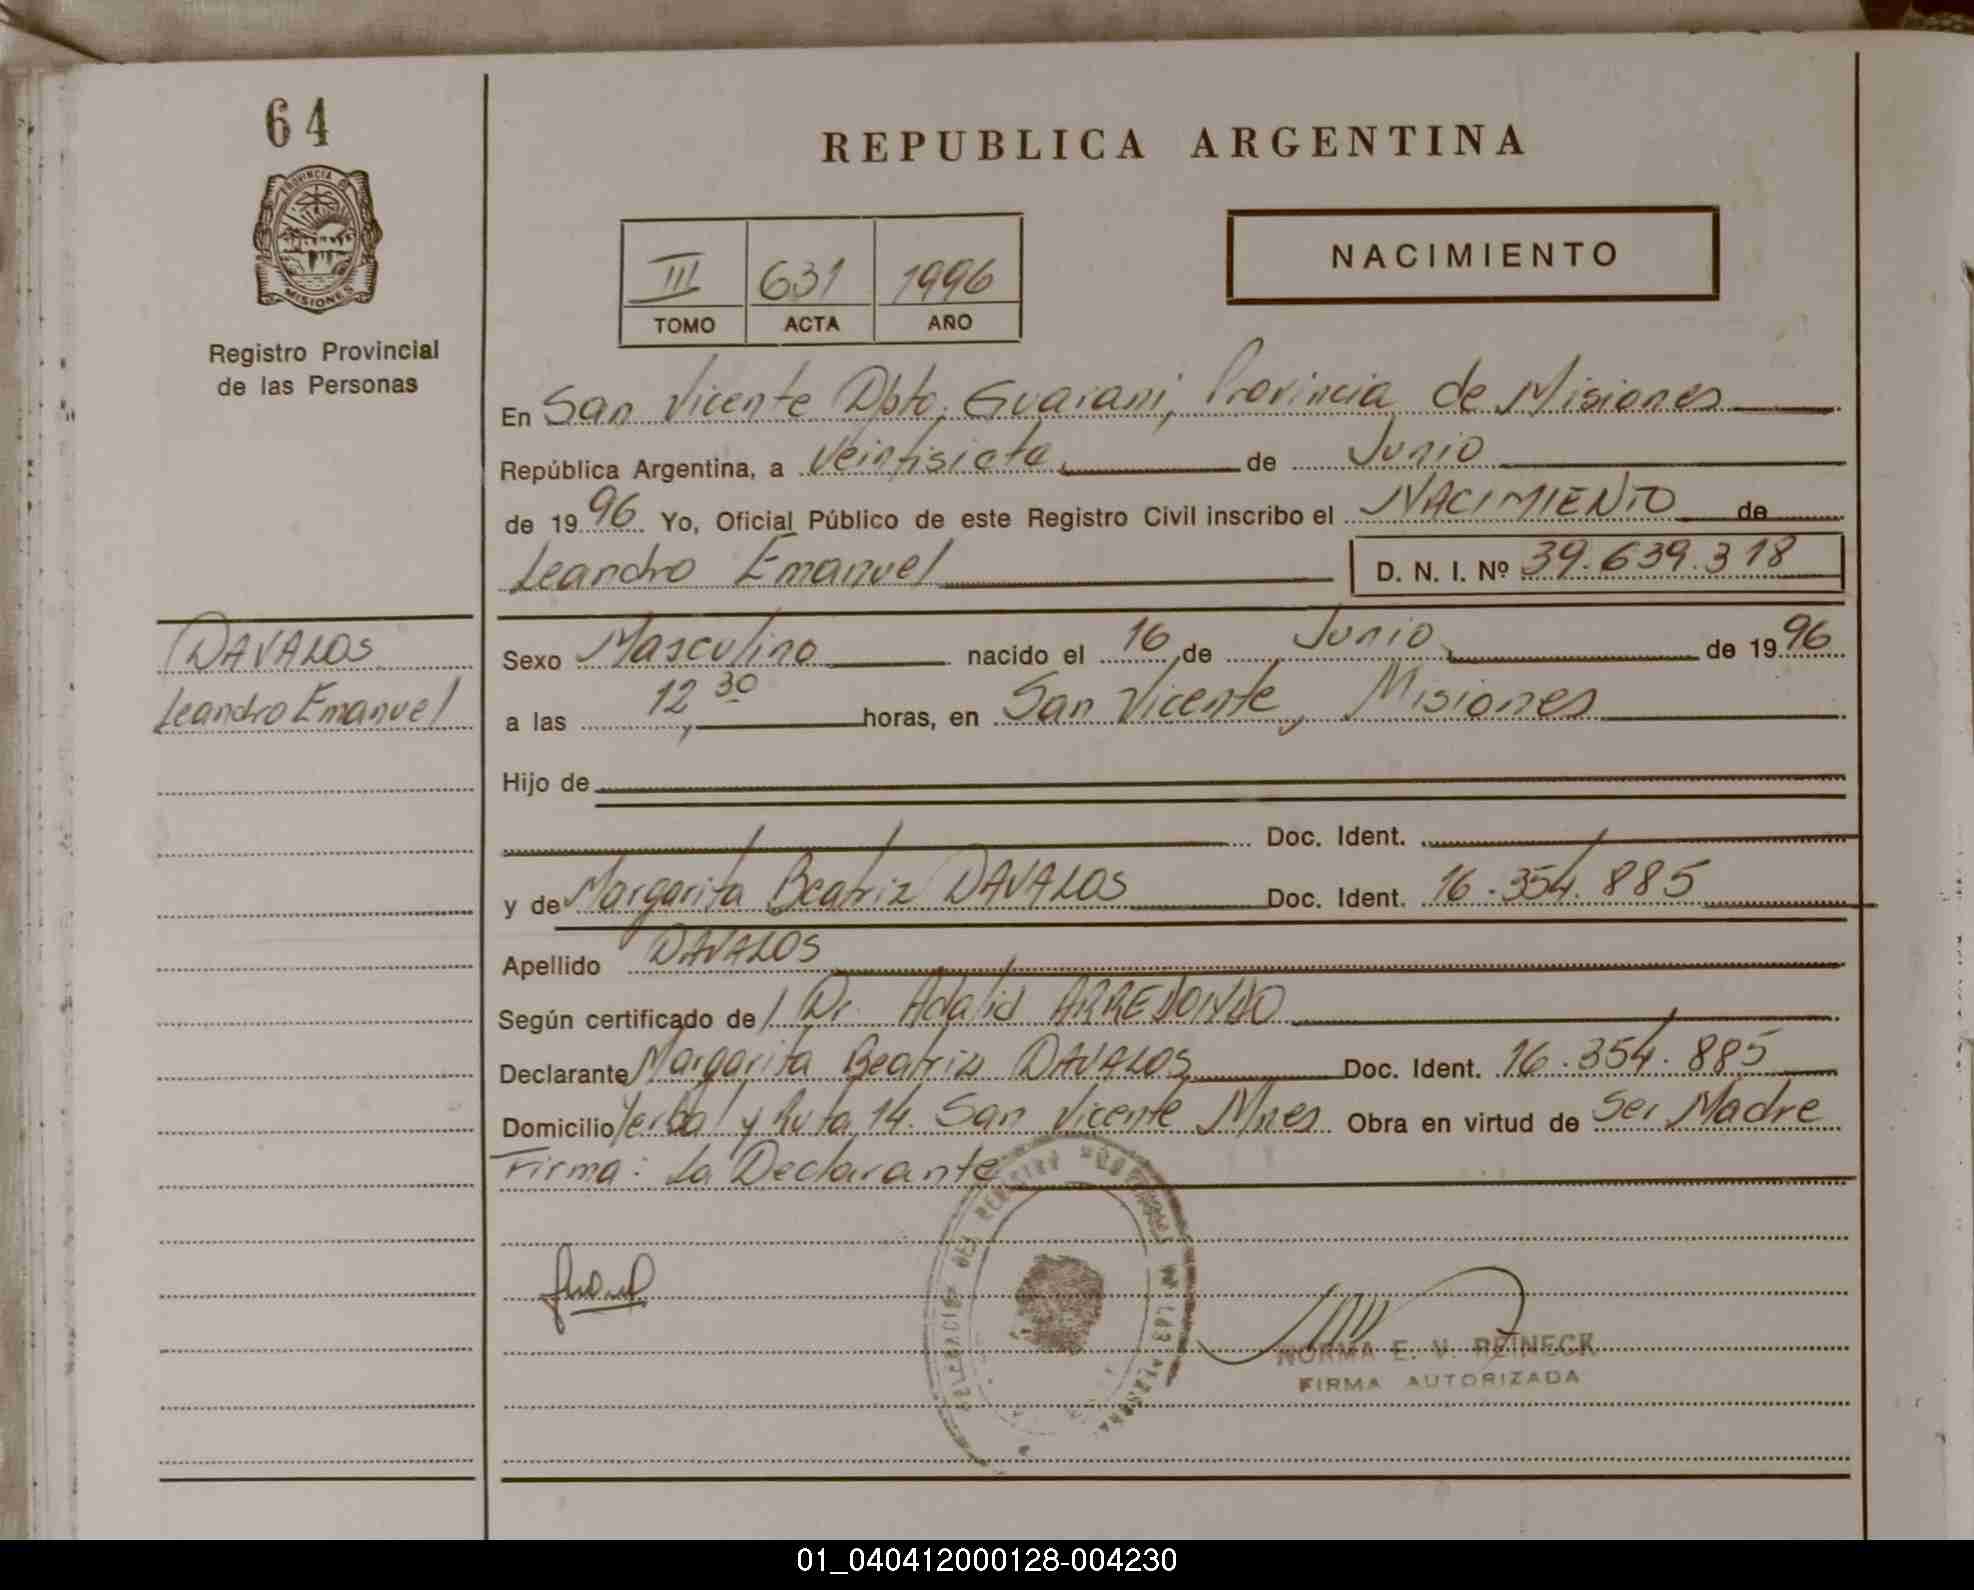 64
PROVINCIA DE
MISIONES
Registro Provincial
de las Personas
REPUBLICA ARGENTINA
III 631 1996
TOMO ACTA AÑO
NACIMIENTO
En San Vicente Dpto. Guarani, Provincia de Misiones
República Argentina, a Veintisiete de Junio
de 1996 Yo, Oficial Público de este Registro Civil inscribo el NACIMIENTO de
Leandro Emanuel D. N. I. Nº 39.639.318
DAVALOS
Leandro Emanuel
Sexo Masculino nacido el 16 de Junio de 1996
a las 12,30 horas, en San Vicente, Misiones
Hijo de
Doc. Ident.
y de Margarita Beatriz DAVALOS Doc. Ident. 16.354.885
Apellido DAVALOS
Según certificado de Dr. Adalid ARREDONDO
Declarante Margarita Beatriz DAVALOS Doc. Ident. 16.354.885
Domicilio Yerbal y Ruta 14. San Vicente Mnes Obra en virtud de Ser Madre
Firma: La Declarante
DEL REGISTRO
NORMA E. V. REINECK
FIRMA AUTORIZADA
01_040412000128-004230